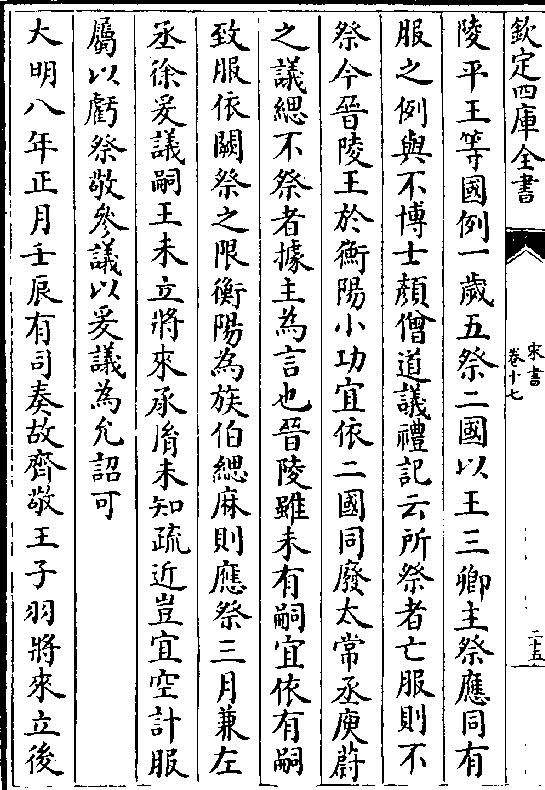 欽定四庫全書
宋書
卷十七
二十五
陵平王等國例一歲五祭二國以王三卿主祭應同有
服之例與不博士顏僧道議禮記云所祭者亡服則不
祭今晉陵王於衡陽小功宜依二國同廢太常丞庾蔚
之議緦不祭者據主為言也晉陵雖未有嗣宜依有嗣
致服依闕祭之限衡陽為族伯緦麻則應祭三月兼左
丞徐爰議嗣王未立將來承胤未知疏近豈宜空計服
屬以虧祭敬參議以爰議為允詔可
大明八年正月壬辰有司奏故齊敬王子羽將來立後